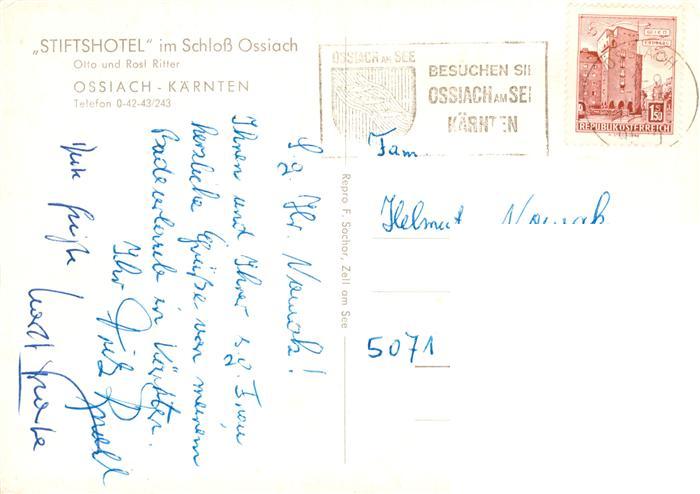 „STIFTSHOTEL" im Schloß Ossiach
Otto und Rosl Ritter
OSSIACH - KÄRNTEN
Telefon 0-42-43/243
OSSIACH AM SEE
BESUCHEN SIE
OSSIACH AM SEE
KÄRNTEN
1.50
REPUBLIK ÖSTERREICH
S. g. Hr. Nowak!
Ihnen und Ihrer s. g. Frau
herzliche Grüße von meinem
Badeurlaub in Kärnten.
Ihr Fritz
Repro F. Sochor, Zell am See
Fam.
Helmut Nowak
5071